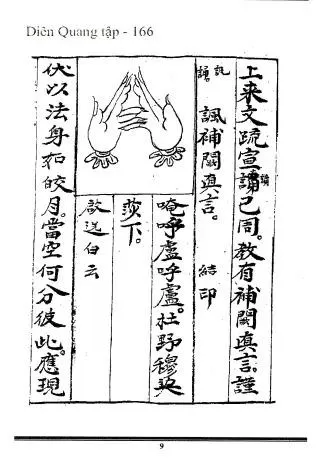 Diên Quang tập - 166
上来文疏宣讀已周。教有補闕真言。謹
諷補闕真言。 結印
唵呼盧呼盧。杜野穆契
莎下。
啟送白云
伏以法身如皎月。當空何分彼此。應現
9